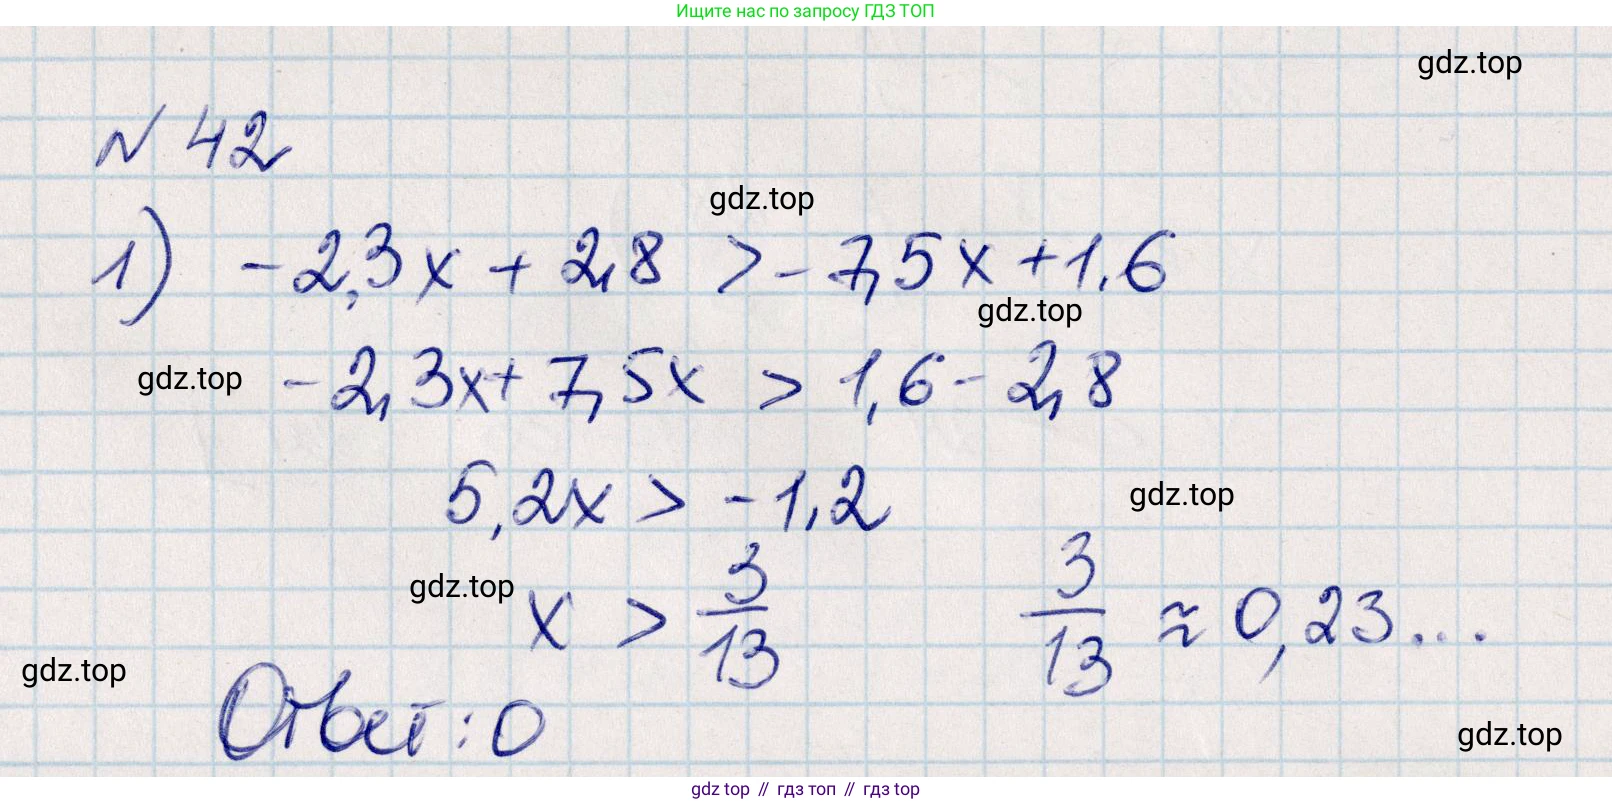 Ищите нас по запросу ГДЗ ТОП
gdz.top
N 42
gdz.top
1) -2,3x + 2,8 > -7,5x + 1,6
gdz.top
gdz.top
-2,3x + 7,5x > 1,6 - 2,8
5,2x > -1,2
gdz.top
gdz.top
x > 3/13    3/13 ≈ 0,23...
gdz.top
Ответ: 0
gdz.top
gdz top // гдз топ // гдз top